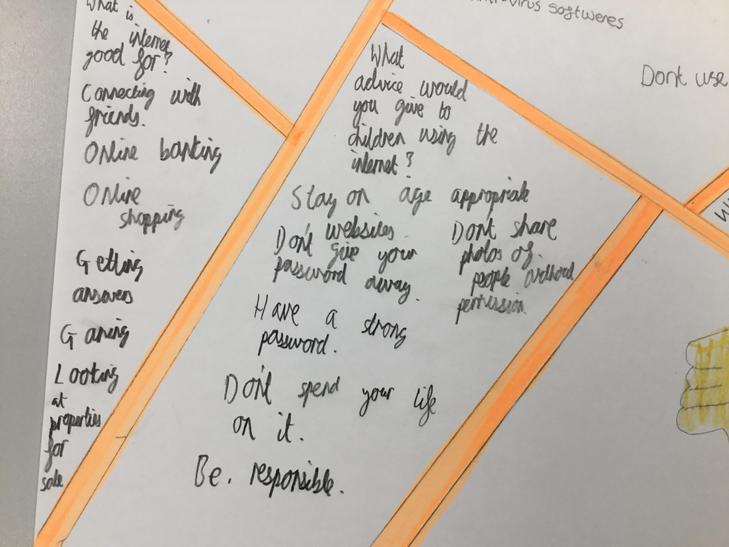 What is
the internet
good for?
Connecting with
friends.
Online banking
Online
shopping
Getting
answers
Gaming
Looking
at
properties
for
sale
What
advice would
you give to
children using the
internet?
Stay on age appropriate
websites.
Don't give your
password away.
Dont share
photos of
people without
permission.
Have a strong
password.
Don't spend your life
on it.
Be. responsible.
virus softweres
Dont use